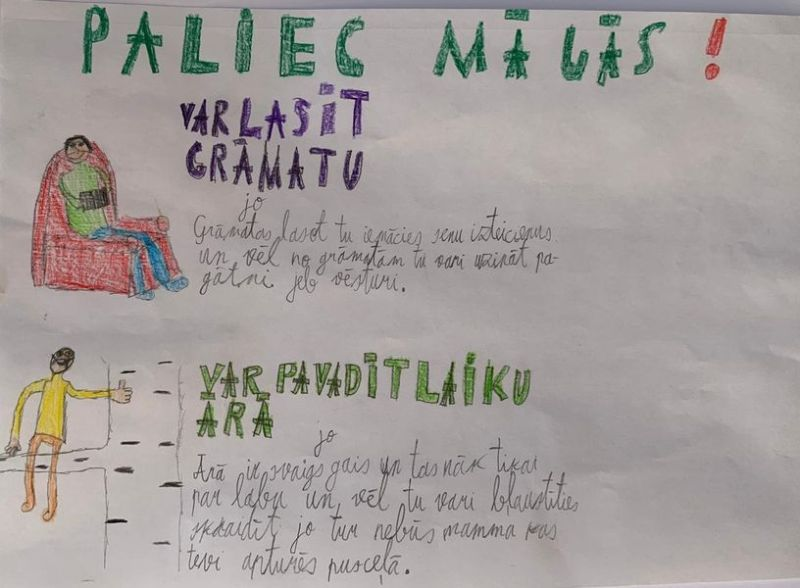 PALIEC MĀJĀS!
VAR LASĪT
GRĀMATU
jo
Grāmatas lasot tu iemācies senu izteicienus
un vēl no grāmatām tu vari uzināt pa-
gātni jeb vēsturi.
VAR PAVADĪT LAIKU
ĀRĀ
jo
Ārā ir svaigs gais un tas nāk tikai
par labu un, vēl tu vari blaustīties
skaudīt jo tur nebūs mamma kas
tevi apturēs pusceļā.